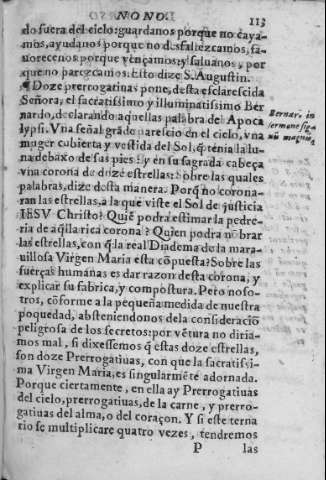 NONO. 113
do fuera del cielo: guardanos porque no caya-
mos, ayudanos porque no desfallezcamos, fa-
uorecenos porque vençamos: y saluanos, por
que no parezcamos. Esto dize S. Augustin.
¶ Doze prerrogatinas pone, desta esclarescida
Señora, el sacratissimo y illuminatissimo Ber
nardo, declarando aquellas palabras de Apoca
lypsi. Vna señal grãde parescio en el cielo, vna
muger cubierta y vestida del Sol, q̃ tenia la lu-
na debaxo de sus pies: y en su sagrada cabeça
vna corona de doze estrellas: Sobre las quales
palabras, dize desta manera. Porq̃ no corona-
ran las estrellas, a la que viste el Sol de justicia
IESV Christo? Quiẽ podra estimar la pedre-
ria de aq̃lla rica corona? Quien podra nõbrar
las estrellas, con q̃ la real Diadema de la mara-
uillosa Virgen Maria esta cõpuesta? Sobre las
fuerças humanas es dar razon desta corona, y
explicar su fabrica, y compostura. Pero noso-
tros, cõforme a la pequeña medida de nuestra
poquedad, absteniendonos de la consideraciõ
peligrosa de los secretos: por vẽtura no diria-
mos mal, si dixessemos q̃ estas doze estrellas,
son doze Prerrogatiuas, con que la sacratissi-
ma Virgen Maria, es singularmẽte adornada.
Porque ciertamente, en ella ay Prerrogatiuas
del cielo, prerrogatiuas, de la carne, y prerro-
gatiuas del alma, o del coraçon. Y si este terna
rio se multiplicare quatro vezes, tendremos
P las
Bernar. in
sermone sig
nũ magnũ,